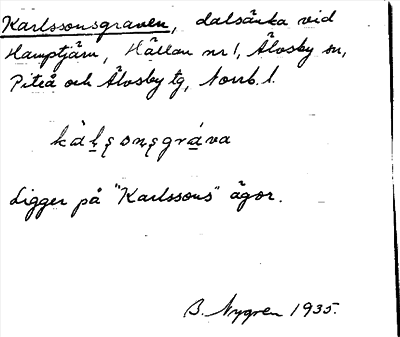 Karlssonsgraven, dalsänka vid
Hamptjärn, Hällan nr 1, Älvsby sn,
Piteå och Älvsby tg, Norrb. l.
Ligger på "Karlssons" ägor.
B. Nygren 1935.